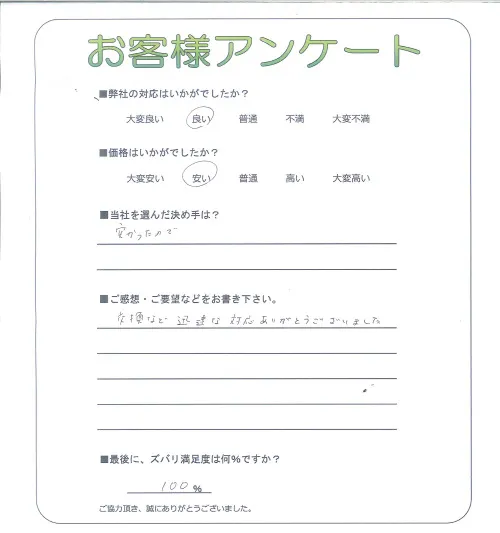 お客様アンケート
■弊社の対応はいかがでしたか?
大変良い 良い 普通 不満 大変不満
■価格はいかがでしたか?
大変安い 安い 普通 高い 大変高い
■当社を選んだ決め手は?
安かったので
■ご感想・ご要望などをお書き下さい。
交換など 迅速な 対応ありがとうございました
■最後に、ズバリ満足度は何%ですか?
100 %
ご協力頂き、誠にありがとうございました。